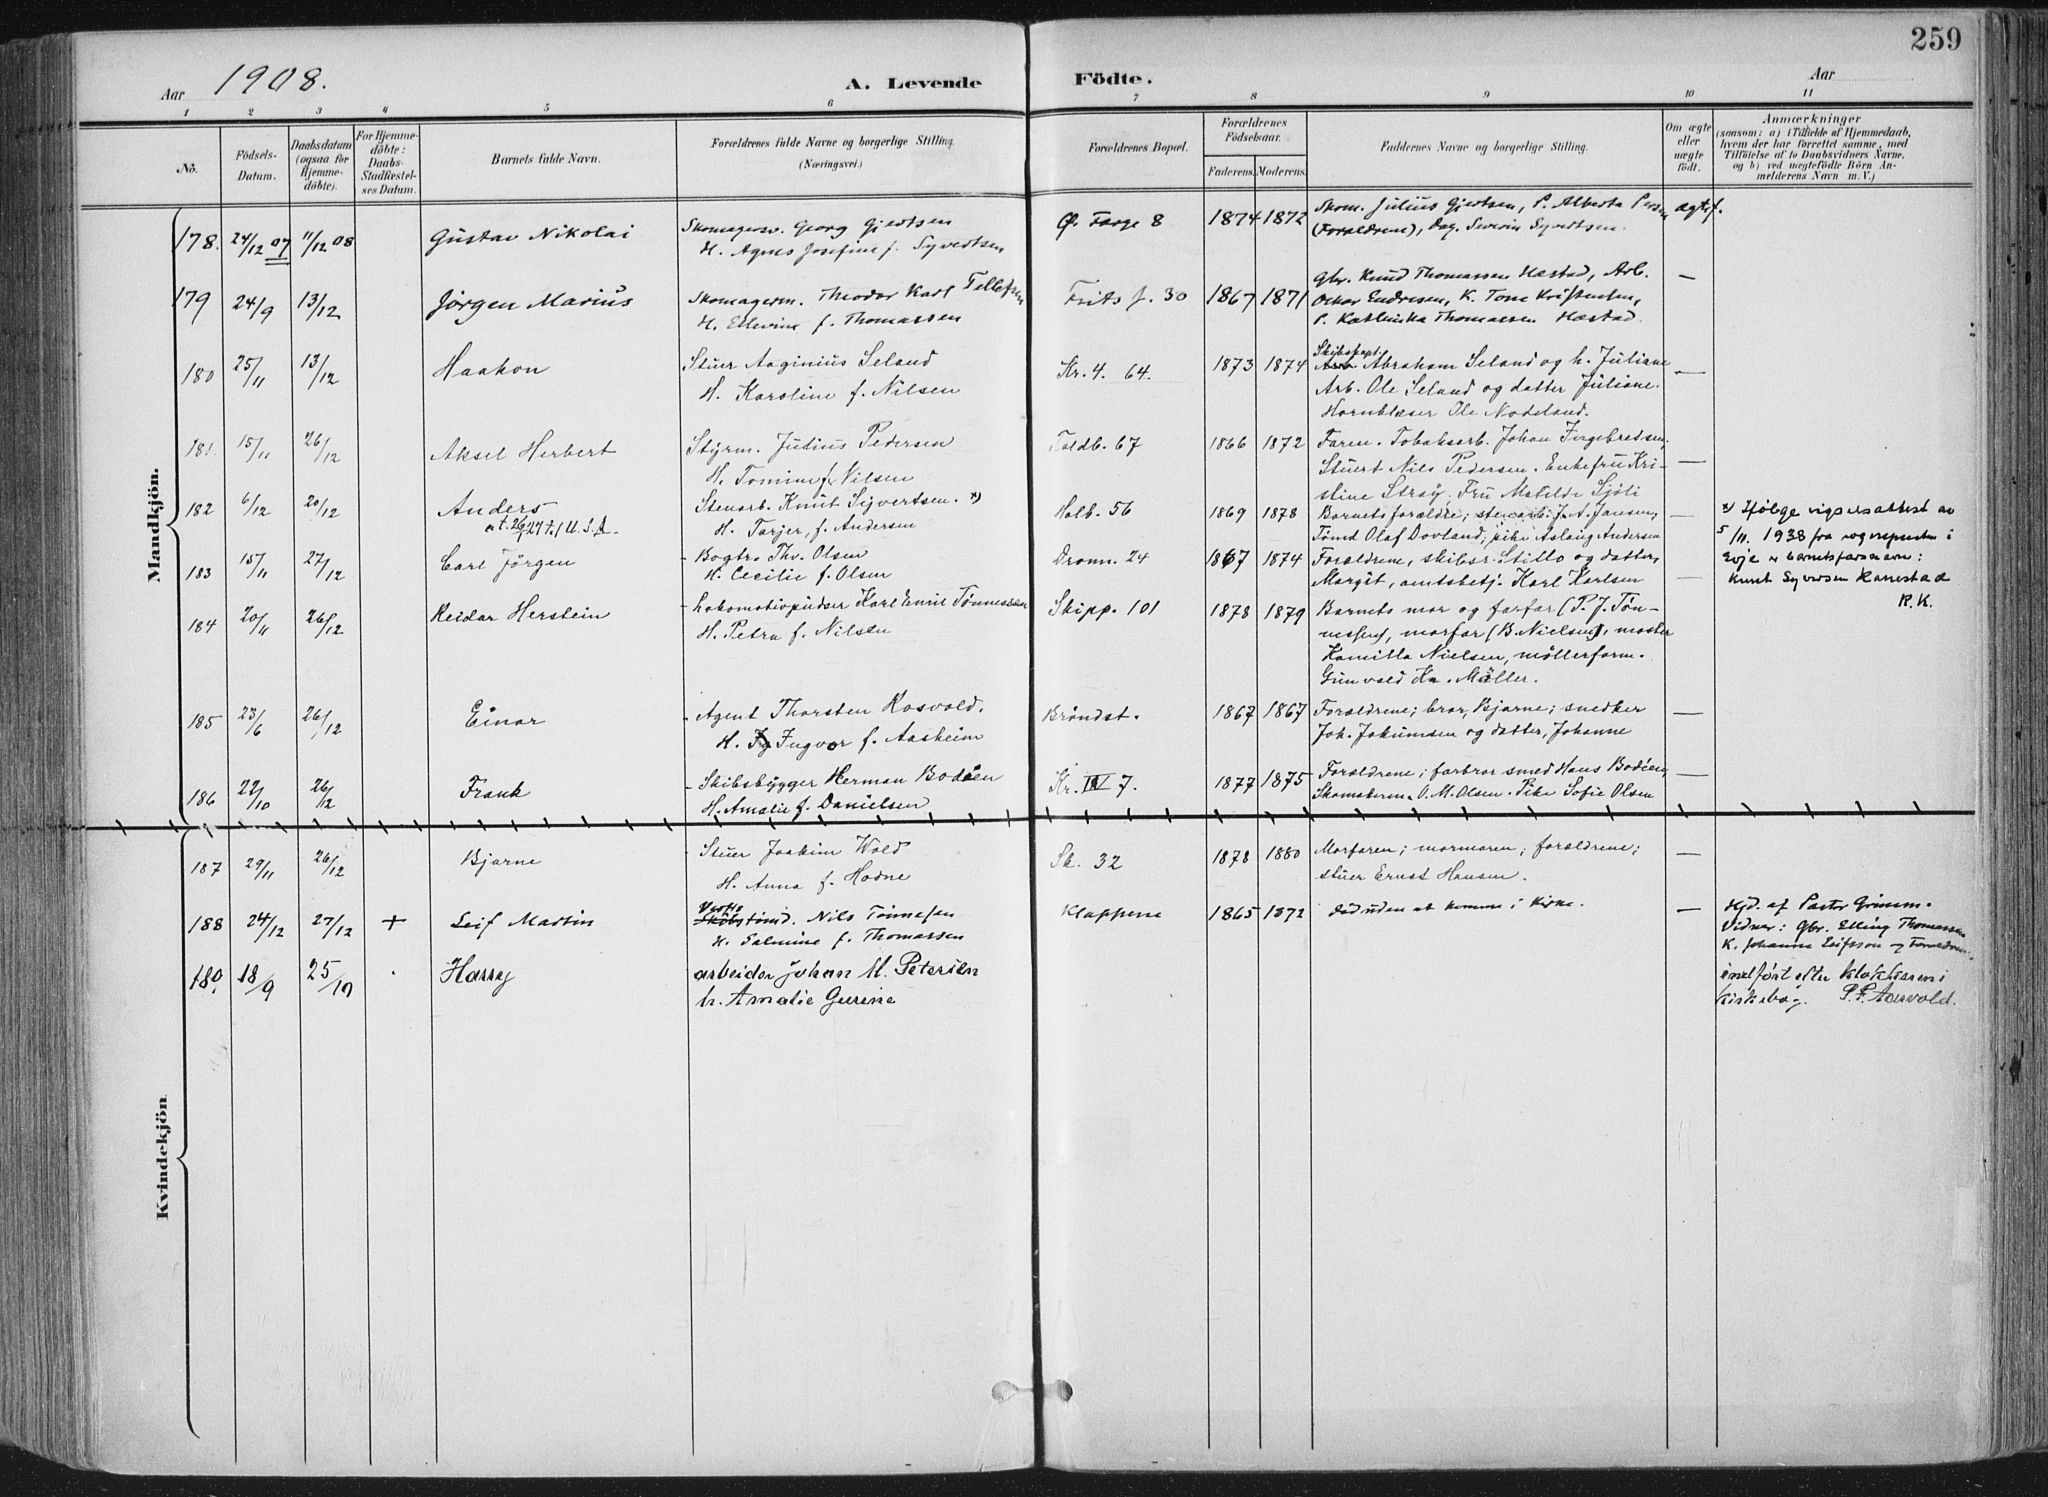 259
Aar 1908. A. Levende Födte. Aar
1 2 3 4 5 6 7 8 9 10 11
No. Födsels-Datum. Daabsdatum (ogsaa for Hjemmedöbte). For Hjemmedöbte: Daabs-Stadfæstelses Datum. Barnets fulde Navn. Forældrenes fulde Navne og borgerlige Stilling. (Næringsvei.) Forældrenes Bopæl. Forældrenes Födselsaar. Faderens. Moderens. Faddernes Navne og borgerlige Stilling. Om ægte eller uægte födt. Anmærkninger (saasom: a) i Tilfælde af Hjemmedaab, hvem der har forrettet samme, med Tilföielse af to Daabsvidners Navne, og b) ved uegtefödte Börn Anmelderens Navn m. V.)
Mandkjön.
178. 24/12 07 11/12 08 Gustav Nikolai Skomagersv. Georg Gjertsen Ø. Farge 8 1874 1872 Skom. Julius Gjertsen, P. Alberta ægtef.
H. Agnes Josefine f. Syvertsen (Forældrene), Dag. Severin Syvertsen.
179 24/9 13/12 Jörgen Marius Skomagerm. Theodor Karl Tellefsen Frits J. 30 1867 1871 Gbr. Knud Thomassen Hæstad, Arb. —
H. f. Thomassen Oskar Endresen, K. Tone Kristensen,
P. Kathinka Thomassen Hæstad
180 25/11 13/12 Haakon Stuer Aaginius Seland Kr. 4. 64. 1873 1874 Skibskapt. Abraham Seland og h. Juliane —
H. Karoline f. Nilsen Arb. Ole Seland og datter Juliane.
Hornblæser Ole Nodeland.
181. 15/11 26/12 Aksel Herbert Styrm. Julius Pedersen Toldb. 67 1866 1872 Faren. Tobaksarb. Johan Ingebretsen,
H. Tomine f. Nilsen Stuert Nils Pedersen. Enkefru Kri- —
stine Stray, Fru Matilde Sjöli
182 6/12 20/12 Anders Stenarb. Knut Syvertsen. x) Holb. 56 1869 1878 Barnets forældre; stenarb. J. A. Jansen, x) Ifølge vigselsattest av
† U.S.A. H. Tarjer, f. Andersen Tömd Olaf Dovland; pike Aslaug Andersen 5/11. 1938 fra sognepresten i
183 15/11 27/12 Carl Jörgen Bogtr. Thv. Olsen Dronn. 24 1867 1874 Forældrene, skibsr. Stillo og datter, Evje er barnets farsnavn:
H. Cecilie f. Olsen Margit, amtsbetj. Karl Karlsen — Knut Syversen Kanestad
R. K.
184 20/11 26/12 Reidar Herstein Lokomotivpudser Karl Emil Tönnessen Skipp. 101 1878 1879 Barnets mor og farfar (P. J. Tön-
H. Petra f. Nilsen nessen), morfar (B. Nielsen), moster
Kamilla Nielsen, möllerform.
Gunvald Kr. Möller.
185 23/6 26/12 Einar Agent Thorsten Rosvold. Bröndst. 1867 1867 Forældrene; bror, Bjarne; snedker —
H. Ingvor f. Aasheim Joh. Jokumsen og datter, Johanne
186 22/10 26/12 Frank Skibsbygger Herman Bodéen Kr. IV 7. 1877 1875 Forældrene; farbror smed Hans Bodéen, —
H. Amalie f. Danielsen Skomakerm. O. M. Olsen. Pike Sofie Olsen
Kvindekjön
187 29/11 26/12 Bjarne Stuer Joakim Wold Sk. 32 1878 1880 Morfaren; mormoren; forældrene; —
H. Anna f. Hodne stuer Ernst Hansen.
188 24/12 27/12 + Leif Martin Nils Tönnesen Klappene 1865 1872 död uden at komme i kirke. — Hjd. af Pastor Grimm.
H. Salmine f. Thomassen Vidner: Gbr. Elling Thomassen
K. Johanne og Forældren.
189. 18/9 25/10 Harry arbeider Johan M. Petersen indført efter klokkerens
h. Amalie Gurine kirkebog. P. F. Aasvold.